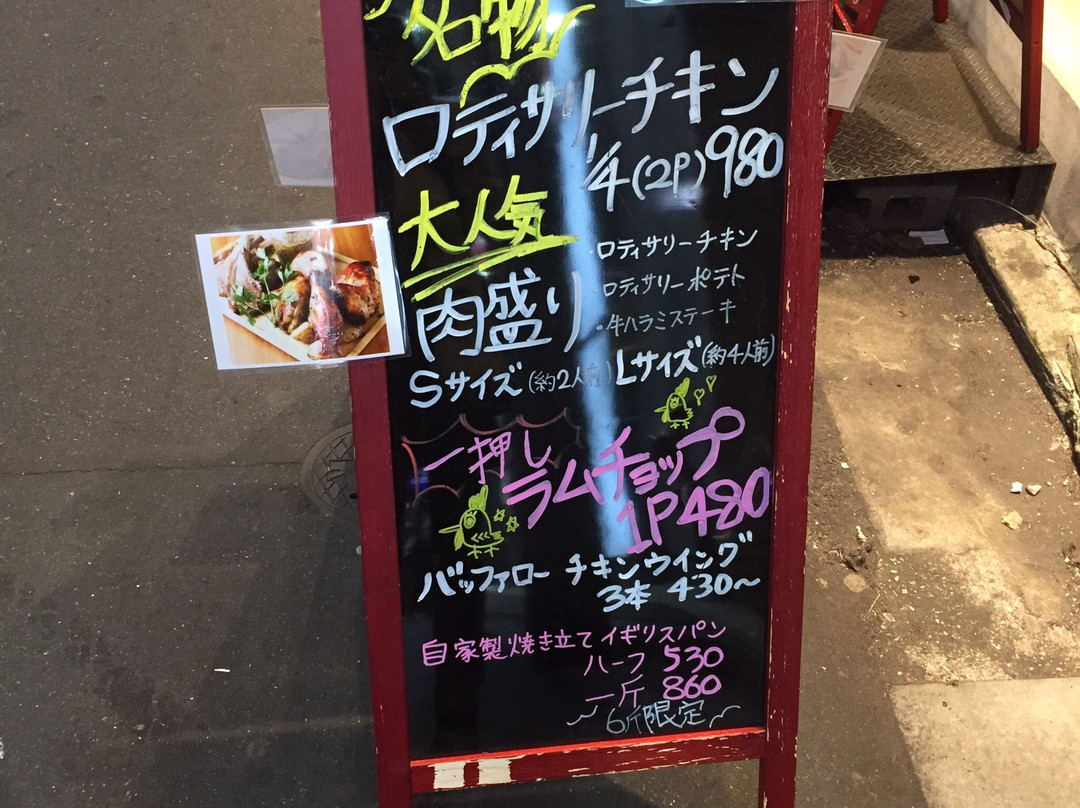 名物
ロティサリーチキン
1/4(2P)980
大人気
肉盛り
・ロティサリーチキン
ロティサリーポテト
・牛ハラミステーキ
Sサイズ(約2人前) Lサイズ(約4人前)
一押し
ラムチョップ
1P480
バッファローチキンウイング
3本 430〜
自家製焼き立てイギリスパン
ハーフ 530
一斤 860
〜6斤限定〜